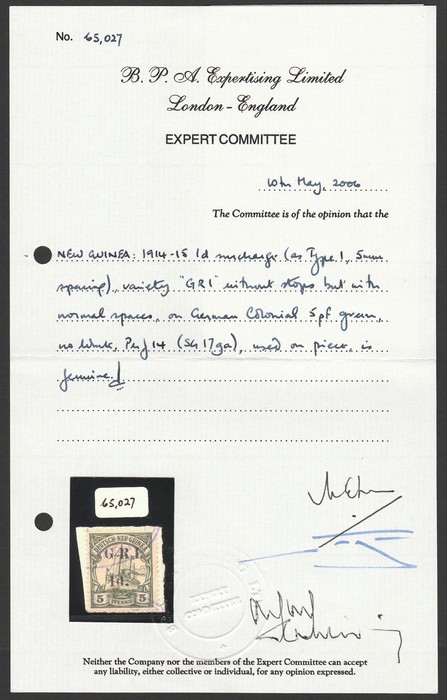 No. 65,027
B. P. A. Expertising Limited
London - England
EXPERT COMMITTEE
10th May, 2006
The Committee is of the opinion that the
NEW GUINEA: 1914-15 1d surcharge (as Type 1, 5mm
spacing), variety "GRI" without stops but with
normal spaces, on German Colonial 5pf green,
no wmk, Perf 14 (SG 17ga), used on piece, is
genuine.
65,027
DEUTSCH-NEU-GUINEA
G.R.I.
1d.
5 PFENNIG 5
Neither the Company nor the members of the Expert Committee can accept
any liability, either collective or individual, for any opinion expressed.